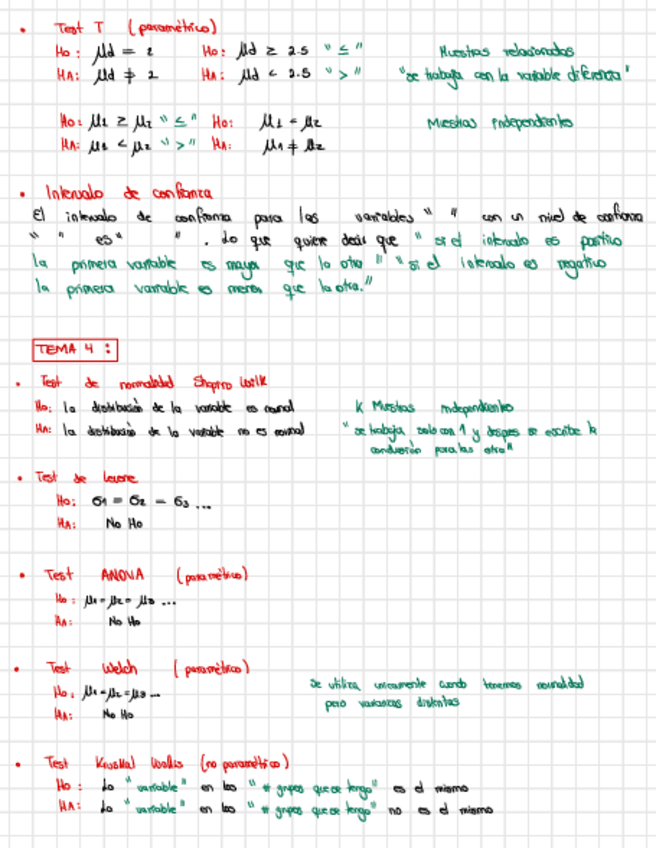 • Test T (paramétrico)
Ho: μd = 2 Ho: μd ≥ 2.5 "≤" Muestras relacionadas
HA: μd ≠ 2 HA: μd < 2.5 ">" "se trabaja con la variable diferencia"
Ho: μ1 ≥ μ2 "≤" Ho: μ1 = μ2 Muestras independientes
HA: μ1 < μ2 ">" HA: μ1 ≠ μ2
• Intervalo de confianza
El intervalo de confianza para las variables " " con un nivel de confianza
" " es " ". Lo que quiere decir que "si el intervalo es positivo
la primera variable es mayor que la otra" "si el intervalo es negativo
la primera variable es menor que la otra."
TEMA 4 :
• Test de normalidad Shapiro Wilk
Ho: la distribución de la variable es normal K Muestras independientes
HA: la distribución de la variable no es normal "se trabaja solo con 1 y despues se escribe la
conclusión para las otra"
• Test de Levene
Ho: σ1 = σ2 = σ3 ...
HA: No Ho
• Test ANOVA (paramétrico)
Ho: μ1=μ2= μ3 ...
HA: No Ho
• Test Welch (paramétrico) se utiliza unicamente cuando tenemos normalidad
Ho: μ1=μ2=μ3 ... pero varianzas distintas
HA: No Ho
• Test Kruskal Wallis (no paramétrico)
Ho: La "variable" en los "# grupos que se tengo" es el mismo
HA: La "variable" en los "# grupos que se tengo" no es el mismo